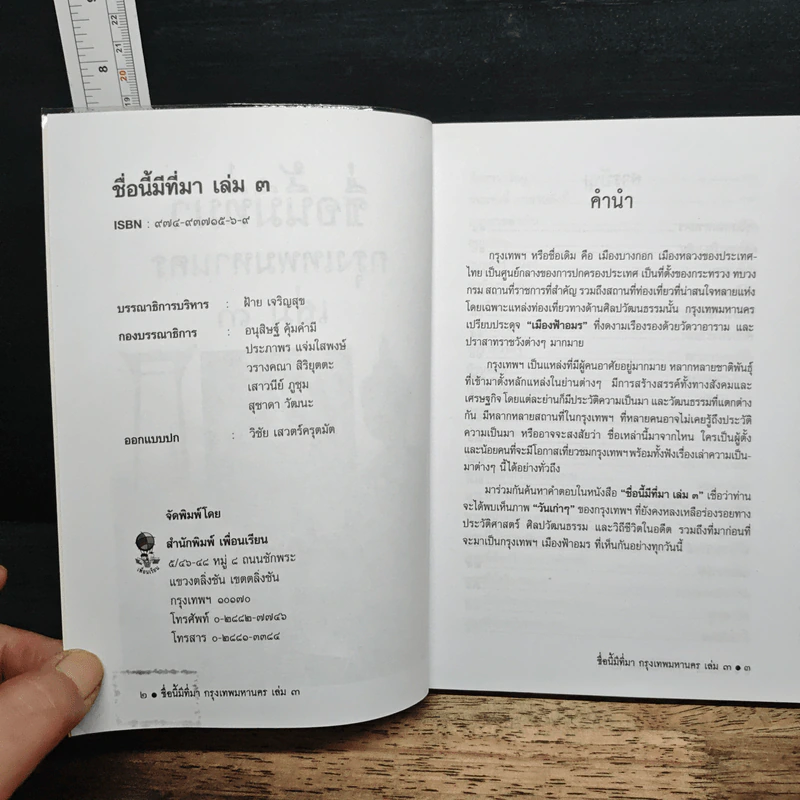 ชื่อนี้มีที่มา เล่ม ๓
ISBN : ๙๗๔-๙๓๗๑๕-๖-๙
บรรณาธิการบริหาร : ฝ้าย เจริญสุข
กองบรรณาธิการ : อนุสิษฐ์ คุ้มคำมี
ประภาพร แจ่มใสพงษ์
วรางคณา สิริยุตตะ
เสาวนีย์ ภูชุม
สุชาดา วัฒนะ
ออกแบบปก : วิชัย เสวตร์ครุตมัต
จัดพิมพ์โดย
สำนักพิมพ์ เพื่อนเรียน
๕/๔๖-๔๘ หมู่ ๘ ถนนชักพระ
แขวงตลิ่งชัน เขตตลิ่งชัน
กรุงเทพฯ ๑๐๑๗๐
โทรศัพท์ ๐-๒๘๘๒-๗๗๔๖
โทรสาร ๐-๒๘๘๑-๓๓๘๔
เพื่อนเรียน
๒ ● ชื่อนี้มีที่มา กรุงเทพมหานคร เล่ม ๓
คำนำ
กรุงเทพฯ หรือชื่อเดิม คือ เมืองบางกอก เมืองหลวงของประเทศ-
ไทย เป็นศูนย์กลางของการปกครองประเทศ เป็นที่ตั้งของกระทรวง ทบวง
กรม สถานที่ราชการที่สำคัญ รวมถึงสถานที่ท่องเที่ยวที่น่าสนใจหลายแห่ง
โดยเฉพาะแหล่งท่องเที่ยวทางด้านศิลปวัฒนธรรมนั้น กรุงเทพมหานคร
เปรียบประดุจ "เมืองฟ้าอมร" ที่งดงามเรืองรองด้วยวัดวาอาราม และ
ปราสาทราชวังต่างๆ มากมาย
กรุงเทพฯ เป็นแหล่งที่มีผู้คนอาศัยอยู่มากมาย หลากหลายชาติพันธุ์
ที่เข้ามาตั้งหลักแหล่งในย่านต่างๆ มีการสร้างสรรค์ทั้งทางสังคมและ
เศรษฐกิจ โดยแต่ละย่านก็มีประวัติความเป็นมา และวัฒนธรรมที่แตกต่าง
กัน มีหลากหลายสถานที่ในกรุงเทพฯ ที่หลายคนอาจไม่เคยรู้ถึงประวัติ
ความเป็นมา หรืออาจจะสงสัยว่า ชื่อเหล่านี้มาจากไหน ใครเป็นผู้ตั้ง
และน้อยคนที่จะมีโอกาสเที่ยวชมกรุงเทพฯ พร้อมทั้งฟังเรื่องเล่าความเป็น-
มาต่างๆ นี้ได้อย่างทั่วถึง
มาร่วมกันค้นหาคำตอบในหนังสือ "ชื่อนี้มีที่มา เล่ม ๓" เชื่อว่าท่าน
จะได้พบเห็นภาพ "วันเก่าๆ" ของกรุงเทพฯ ที่ยังคงหลงเหลือร่องรอยทาง
ประวัติศาสตร์ ศิลปวัฒนธรรม และวิถีชีวิตในอดีต รวมถึงที่มาก่อนที่
จะมาเป็นกรุงเทพฯ เมืองฟ้าอมร ที่เห็นกันอย่างทุกวันนี้
ชื่อนี้มีที่มา กรุงเทพมหานคร เล่ม ๓ ● ๓